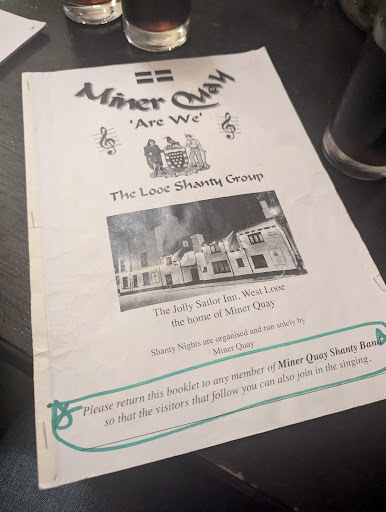 Miner Quay
'Are We'
The Looe Shanty Group
The Jolly Sailor Inn, West Looe
the home of Miner Quay
Shanty Nights are organised and run solely by
Miner Quay
Please return this booklet to any member of Miner Quay Shanty Band
so that the visitors that follow you can also join in the singing.